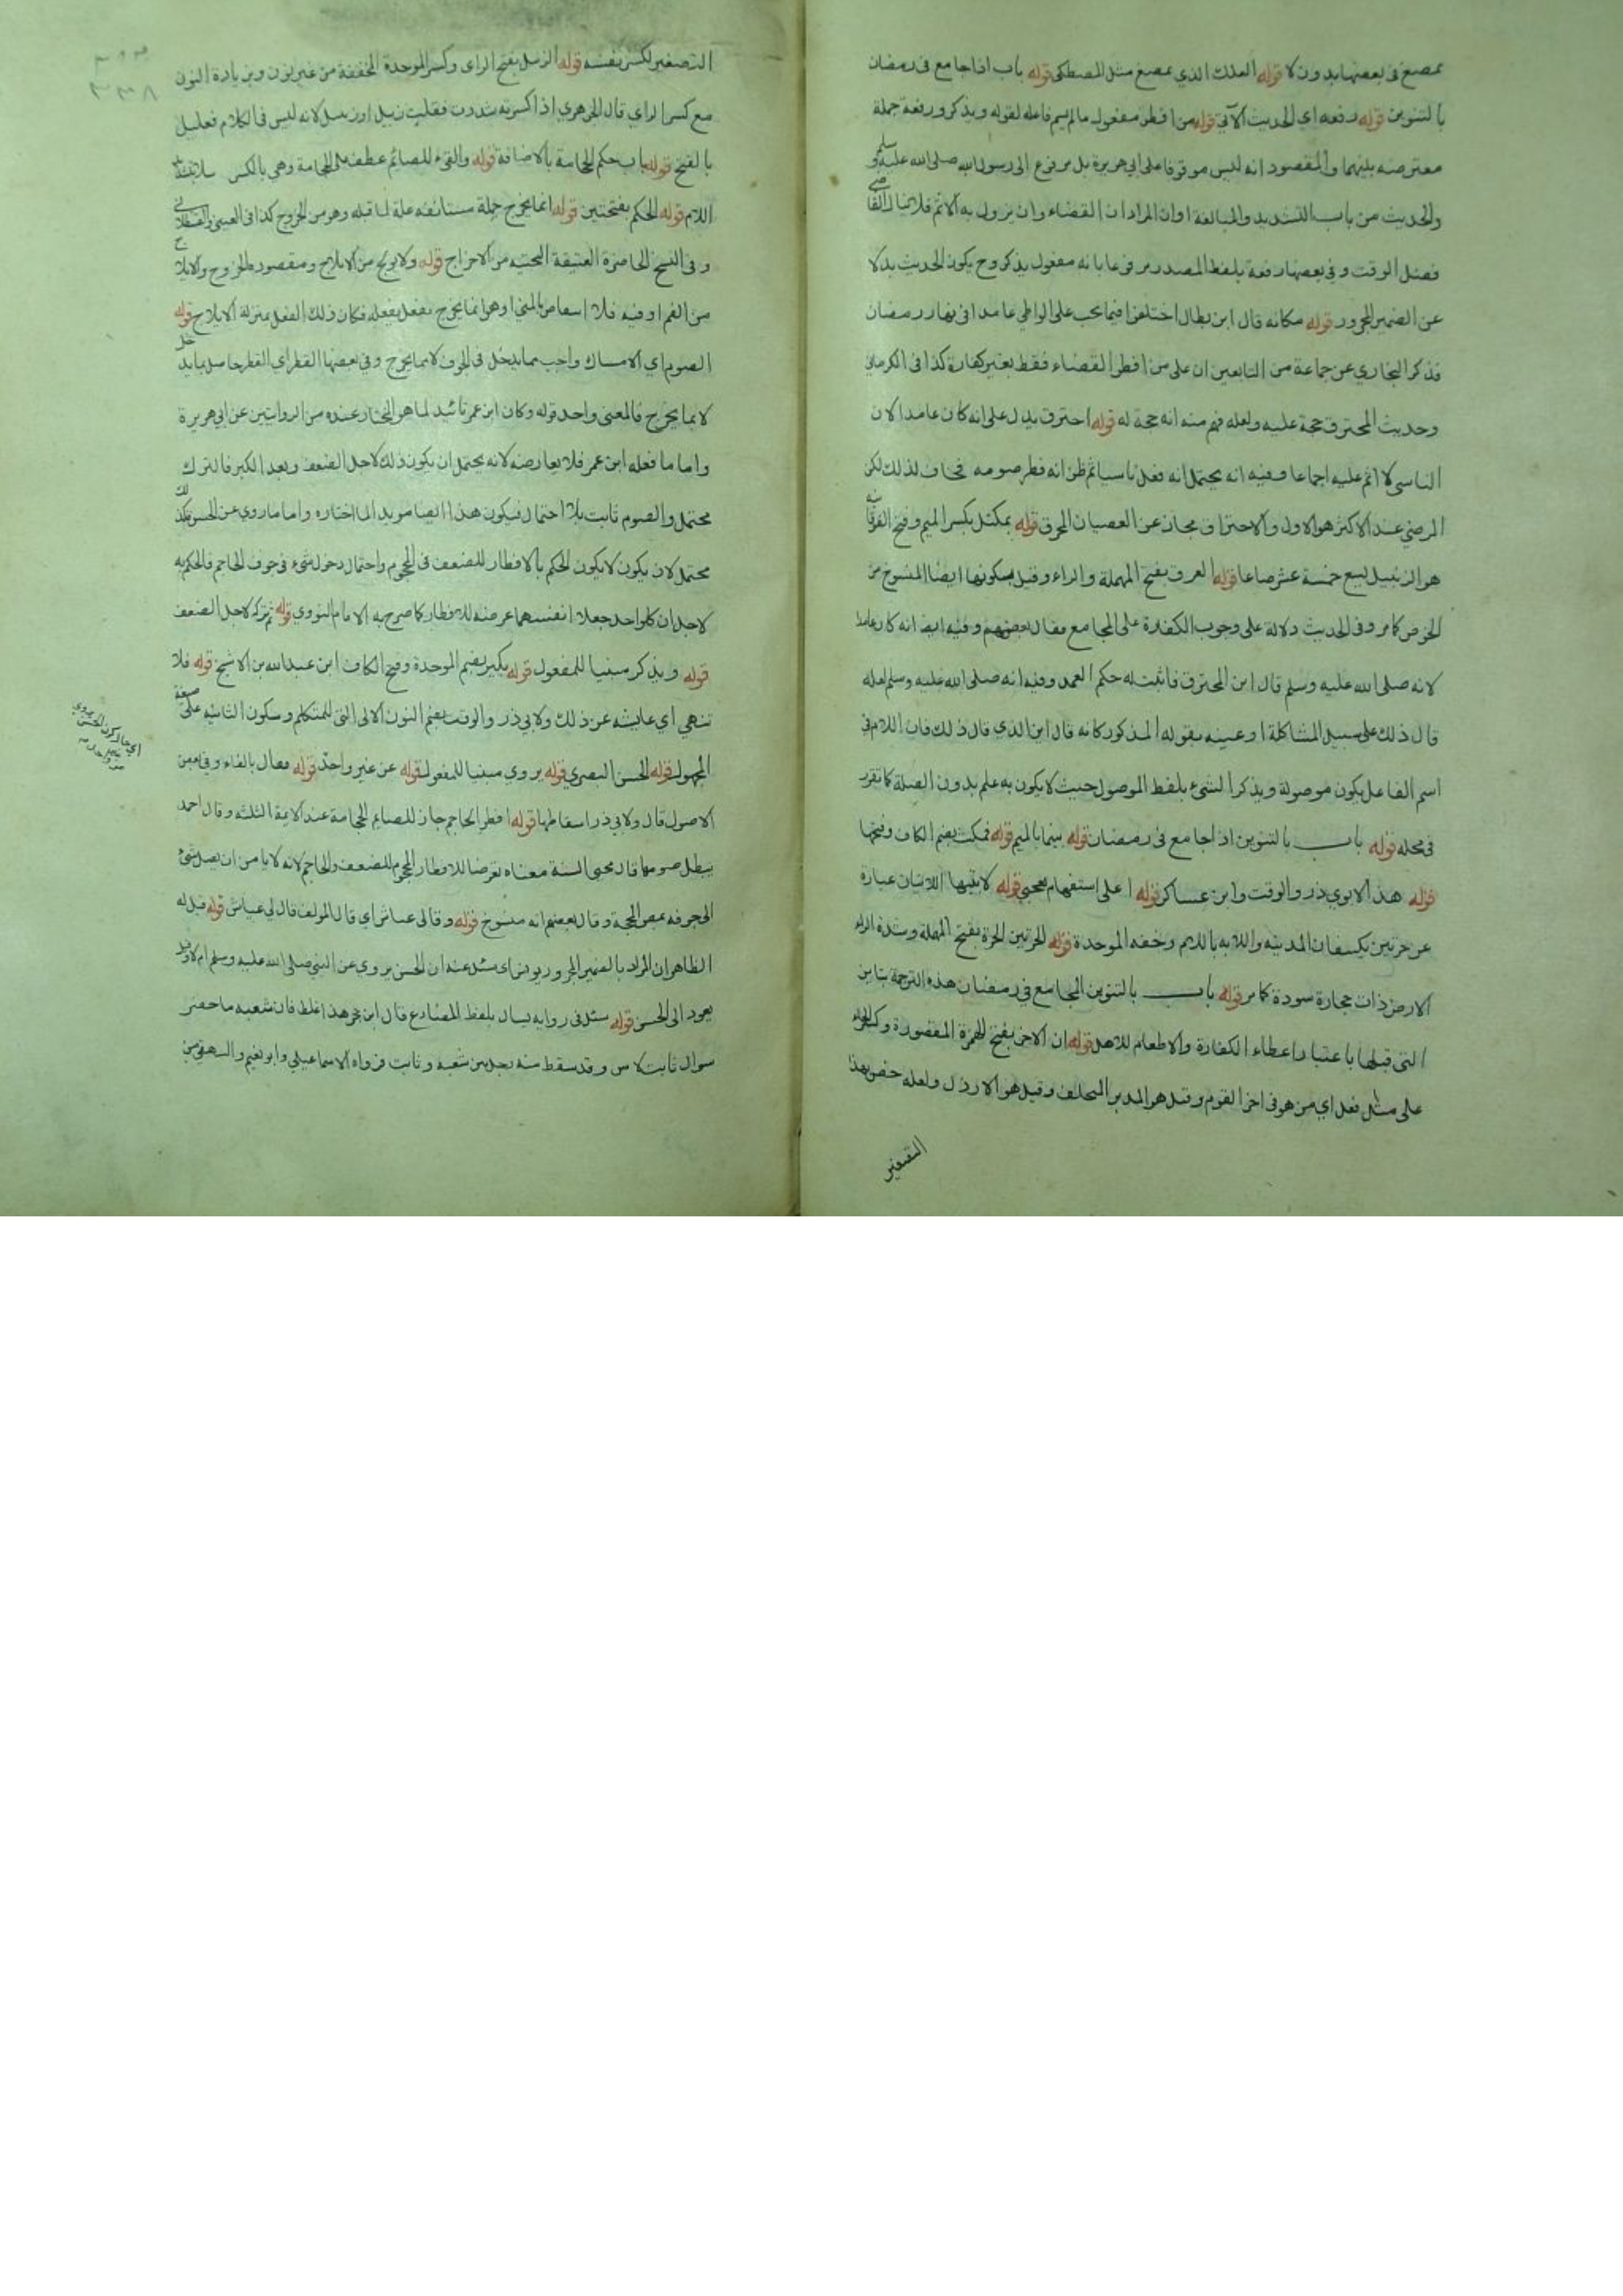 بمضغ فى بعضها بدون لا قوله العلك الذي بمضغ مثل المصطكى قوله باب اذا جامع فى رمضان
بالتنوين قوله رفعه اي الحديث الآتي قوله من افطر مفعول ما لم يسم فاعله لقوله ويذكر ورفعه جملة
معترضه بينهما والمقصود انه ليس موقوفا على ابى هريرة بل مرفوع الى رسول الله صلى الله عليه وسلم
والحديث من باب التشديد والمبالغة او ان المراد ان القضاء وان يزول به الاثم فلا ينال القاضي
فضل الوقت وفي بعضها رفعة بلفظ المصدر مرفوعا بانه مفعول يذكر وح يكون الحديث بدلا
عن الضمير المجرور قوله مكانه قال ابن بطال اختلفوا فيما يجب على الواطي عامدا فى نهار رمضان
فذكر البخاري عن جماعة من التابعين ان على من افطر القضاء فقط بغير كفارة كذا فى الكرماني
وحديث المحترق حجة عليه ولعله فهم منه انه حجة له قوله احترق يدل على انه كان عامدا لان
الناسى لا اثم عليه اجماعا وفيه انه يحتمل انه فعل ناسيا ثم ظن انه فطر صومه فخاف لذلك لكن
المرضي عند الاكثر هو الاول والاحتراق مجاز عن العصيان المحرق قوله بمكتل بكسر الميم وفتح الفوقانية
هو الزنبيل يسع خمسة عشر صاعا قوله العرق بفتح المهملة والراء وقيل بسكونها ايضا المنسوج من
الخوص كما مر وفى الحديث دلالة على وجوب الكفارة على المجامع فقال بعضهم وفيه ايضا انه كان عامدا
لانه صلى الله عليه وسلم قال اين المحترق فاثبت له حكم العمد وفيه انه صلى الله عليه وسلم لعله
قال ذلك على سبيل المشاكلة او عينه بقوله المذكور كانه قال اين الذي قال ذلك فان اللام في
اسم الفاعل يكون موصولة ويذكر الشيء بلفظ الموصول حيث لا يكون به علم بدون الصلة كما تقرر
فى محله قوله باب بالتنوين اذا جامع فى رمضان قوله بينما بالميم قوله فمكث بضم الكاف وفتحها
قوله هذا لابوي ذر والوقت وابن عساكر قوله اعلى استفهام تعجبي قوله لابتيها اللابتان عبارة
عن حرتين يكتنفان المدينه واللابه باللام وخفه الموحدة قوله الحرتين الحرة بفتح المهملة وشدة الراء
الارض ذات حجارة سودة كما مر قوله باب بالتنوين المجامع في رمضان هذه الترجمة تباين
التى قبلها باعتبار اعطاء الكفارة والاطعام للاهل قوله ان الاخر بفتح الهمزة المقصورة وكسر الخاء
على مثل فعل اي من هو فى اخر القوم وقيل هو المدبر المتخلف وقيل هو الارذل ولعله خص بهذا
التصغير
التصغير لكسر نفسه قوله الزبيل بفتح الزاى وكسر الموحدة المخففة من غير نون وبزيادة النون
مع كسر الزاي قال الجوهري اذا كسرته شددت فقلت زبيل او زنبيل لانه ليس فى الكلام فعليل
بالفتح قوله باب حكم الحجامة بالاضافة قوله والقيء للصائم عطف على الحجامة وهي بالكسر
اللام قوله الحكم بفتحتين قوله انما يخرج جملة مستانفه علة لما قبله وهو من الخروج كذا فى العيني والقسطلاني
وفى النسخ الحاضرة العتيقة من الاخراج قوله ولا يولج من الايلاج ومقصوده الخروج والايلاج
من الفم او فيه فلا بالمني اوهو انما يخرج بفعل يفعله فكان ذلك الفعل بمنزلة الايلاج قوله
الصوم اي الامساك واجب مما يدخل فى الجوف لا مما يخرج وفي بعضها الفطر اي الفطر حاصل بما يدخل
لا بما يخرج فالمعنى واحد قوله وكان ابن عمر تائيد لما هو المختار عنده من الروايتين عن ابى هريرة
واما ما فعله ابن عمر فلا يعارضه لانه يحتمل ان يكون ذلك لاجل الضعف وبعد الكبر فالترك
محتمل والصوم ثابت بلا احتمال فيكون هذا ايضا مويدا لما اختاره واما ما روي عن الحسن فكذلك
محتمل لان يكون لا يكون الحكم بالافطار للضعف فى المحجوم واحتمال دخول شيء فى جوف الحاجم فالحكم به
لاجل ان كل واحد جعلا انفسهما عرضه للافطار كما صرح به الامام النووي قوله ثم تركه لاجل الضعف
قوله ويذكر مبنيا للمفعول قوله بكير بضم الموحدة وفتح الكاف ابن عبد الله بن الاشج قوله فلا
ننهى اي عايشه عن ذلك ولابي ذر والوقت بضم النون الاولى التى للمتكلم وسكون الثانيه على صيغة
المجهول قوله الحسن البصري قوله يروي مبنيا للمفعول قوله عن غير واحد قوله فقال بالفاء وفي بعض
الاصول قال ولابي ذر اسقاطها قوله افطر الحاجم جاز للصايم الحجامة عند الايمة الثلثه وقال احمد
يبطل صومها قال محيى السنة معناه تعرضا للافطار المحجوم للضعف والحاجم لانه لا يامن ان يصل شئ
الى جوفه بمص المحجمة وقال بعضهم انه منسوخ قوله وقال لى عياش اي قال المولف قال لي عياش قوله قيل له
الظاهر ان المراد بالضمير المجرور يونس اى سئل عنه ان الحسن يروي عن النبي صلى الله عليه وسلم ام لا وقد
يعود الى الحسن قوله سئل فى روايه يسال بلفظ المضارع قال ابن حجر هذا غلط فان شعبه ما حضر
سوال ثابت لانس وقد سقط منه رجل بين شعبه وثابت فرواه الاسماعيلي وابو نعيم والبيهقي من